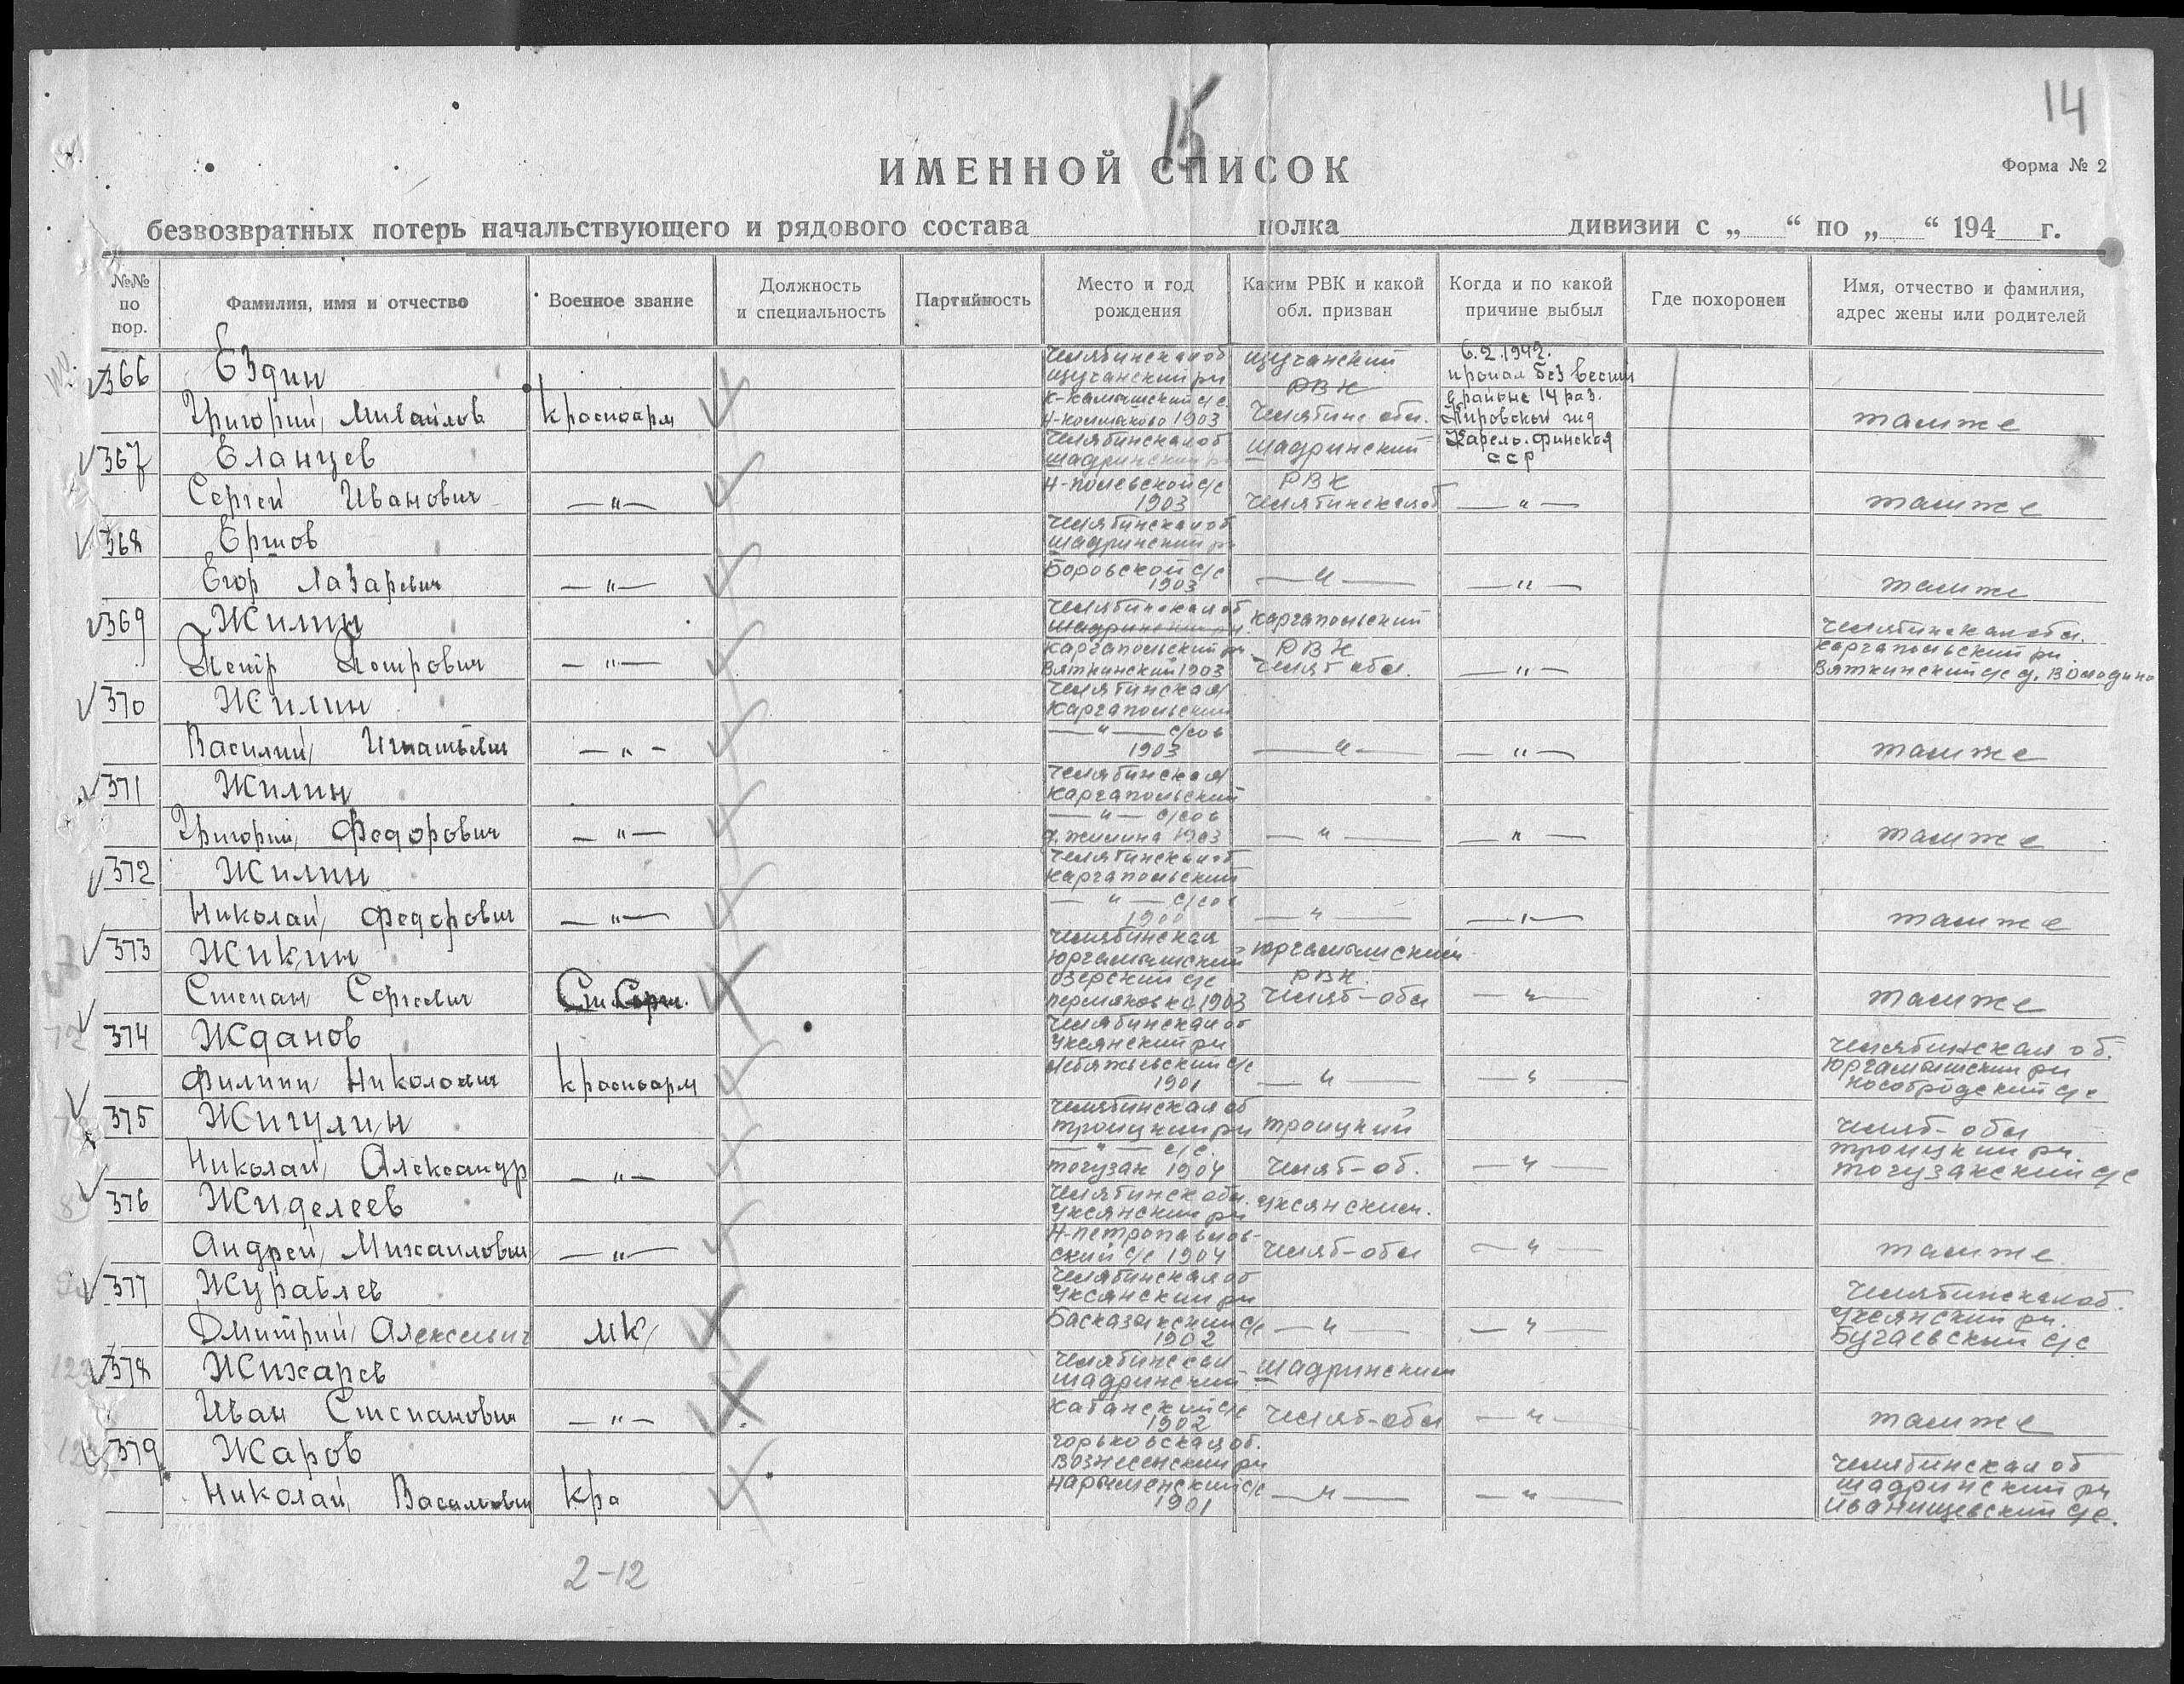 15
14
ИМЕННОЙ СПИСОК
Форма № 2
безвозвратных потерь начальствующего и рядового состава полка дивизии с „ “ по „ “ 194 г.
№№ по пор.
Фамилия, имя и отчество
Военное звание
Должность и специальность
Партийность
Место и год рождения
Каким РВК и какой обл. призван
Когда и по какой причине выбыл
Где похоронен
Имя, отчество и фамилия, адрес жены или родителей
366 Ездин Челябинская об Щучанский рн Щучанский РВК 6.2.1942. пропал без вести
Григорий Михайлов Красноарм 1903 Челябинс обл. в районе 14 раз. Кировской жд Карело-Финская ССР там же
367 Еланцев Челябинская об Шадринский Шадринский РВК
Сергей Иванович —"— с/с 1903 Челябинская об —"— там же
368 Ершов Челябинская об Шадринский рн
Егор Лазаревич —"— Боровской с/с 1903 —"— —"— там же
369 Жилин Челябинская об Шадринский рн Каргапольский РВК Челябинская обл.
Петр Петрович —"— Каргапольский рн Вяткинский 1903 Челяб обл. —"— Каргапольский рн Вяткинский с/с д. Володино
370 Жилин Челябинская Каргапольский
Василий Игнатьевич —"— —"— с/сов 1903 —"— —"— там же
371 Жилин Челябинская Каргапольский
Григорий Федорович —"— —"— с/сов д. Жилина 1903 —"— —"— там же
372 Жилин Челябинская об Каргапольский
Николай Федорович —"— —"— с/сов 1900 —"— —"— там же
373 Жикин Челябинская Юргамышский Юргамышский РВК
Степан Сергеевич Ст Серж. Озерский с/с Пермяковка 1903 Челяб-обл —"— там же
374 Жданов Челябинская об Уксянский рн Челябинская об.
Филипп Николаевич Красноарм Лебяжьевский с/с 1901 —"— —"— Юргамышский рн с/с
375 Жигулин Челябинская об Троицкий рн Троицкий Челяб-обл
Николай Александр —"— —"— с/с. Тогузак 1904 Челяб-об. —"— Троицкий рн. Тогузакский с/с
376 Жиделеев Челябинск обл. Уксянский рн Уксянский.
Андрей Михайлович —"— Н-Петропавловский с/с 1904 Челяб-обл —"— там же
377 Журавлев Челябинская об Уксянский рн Челябинская об.
Дмитрий Алексеевич МК с/с 1902 —"— —"— Уксянский рн. Бугаевский с/с
378 Жихарев Шадринский Шадринский
Иван Степанович —"— с/с 1902 Челяб-обл —"— там же
379 Жаров Горьковская об. Вознесенский рн Челябинская об
Николай Васильевич Кра Нарышенский с/с 1901 —"— —"— Шадринский рн Иванищевский с/с.
2-12